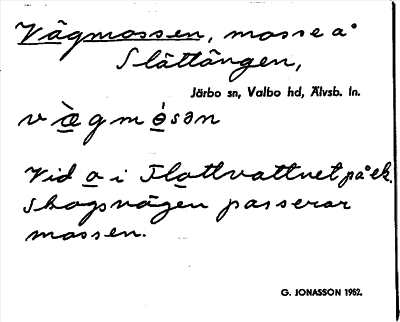 Vägmossen, mosse å
Slättängen,
Järbo sn, Valbo hd, Älvsb. ln.
v æ̀ g m ó s ə n
Vid a i Flottvattnet på ek.
Skogsvägen passerar
mossen.
G. JONASSON 1962.